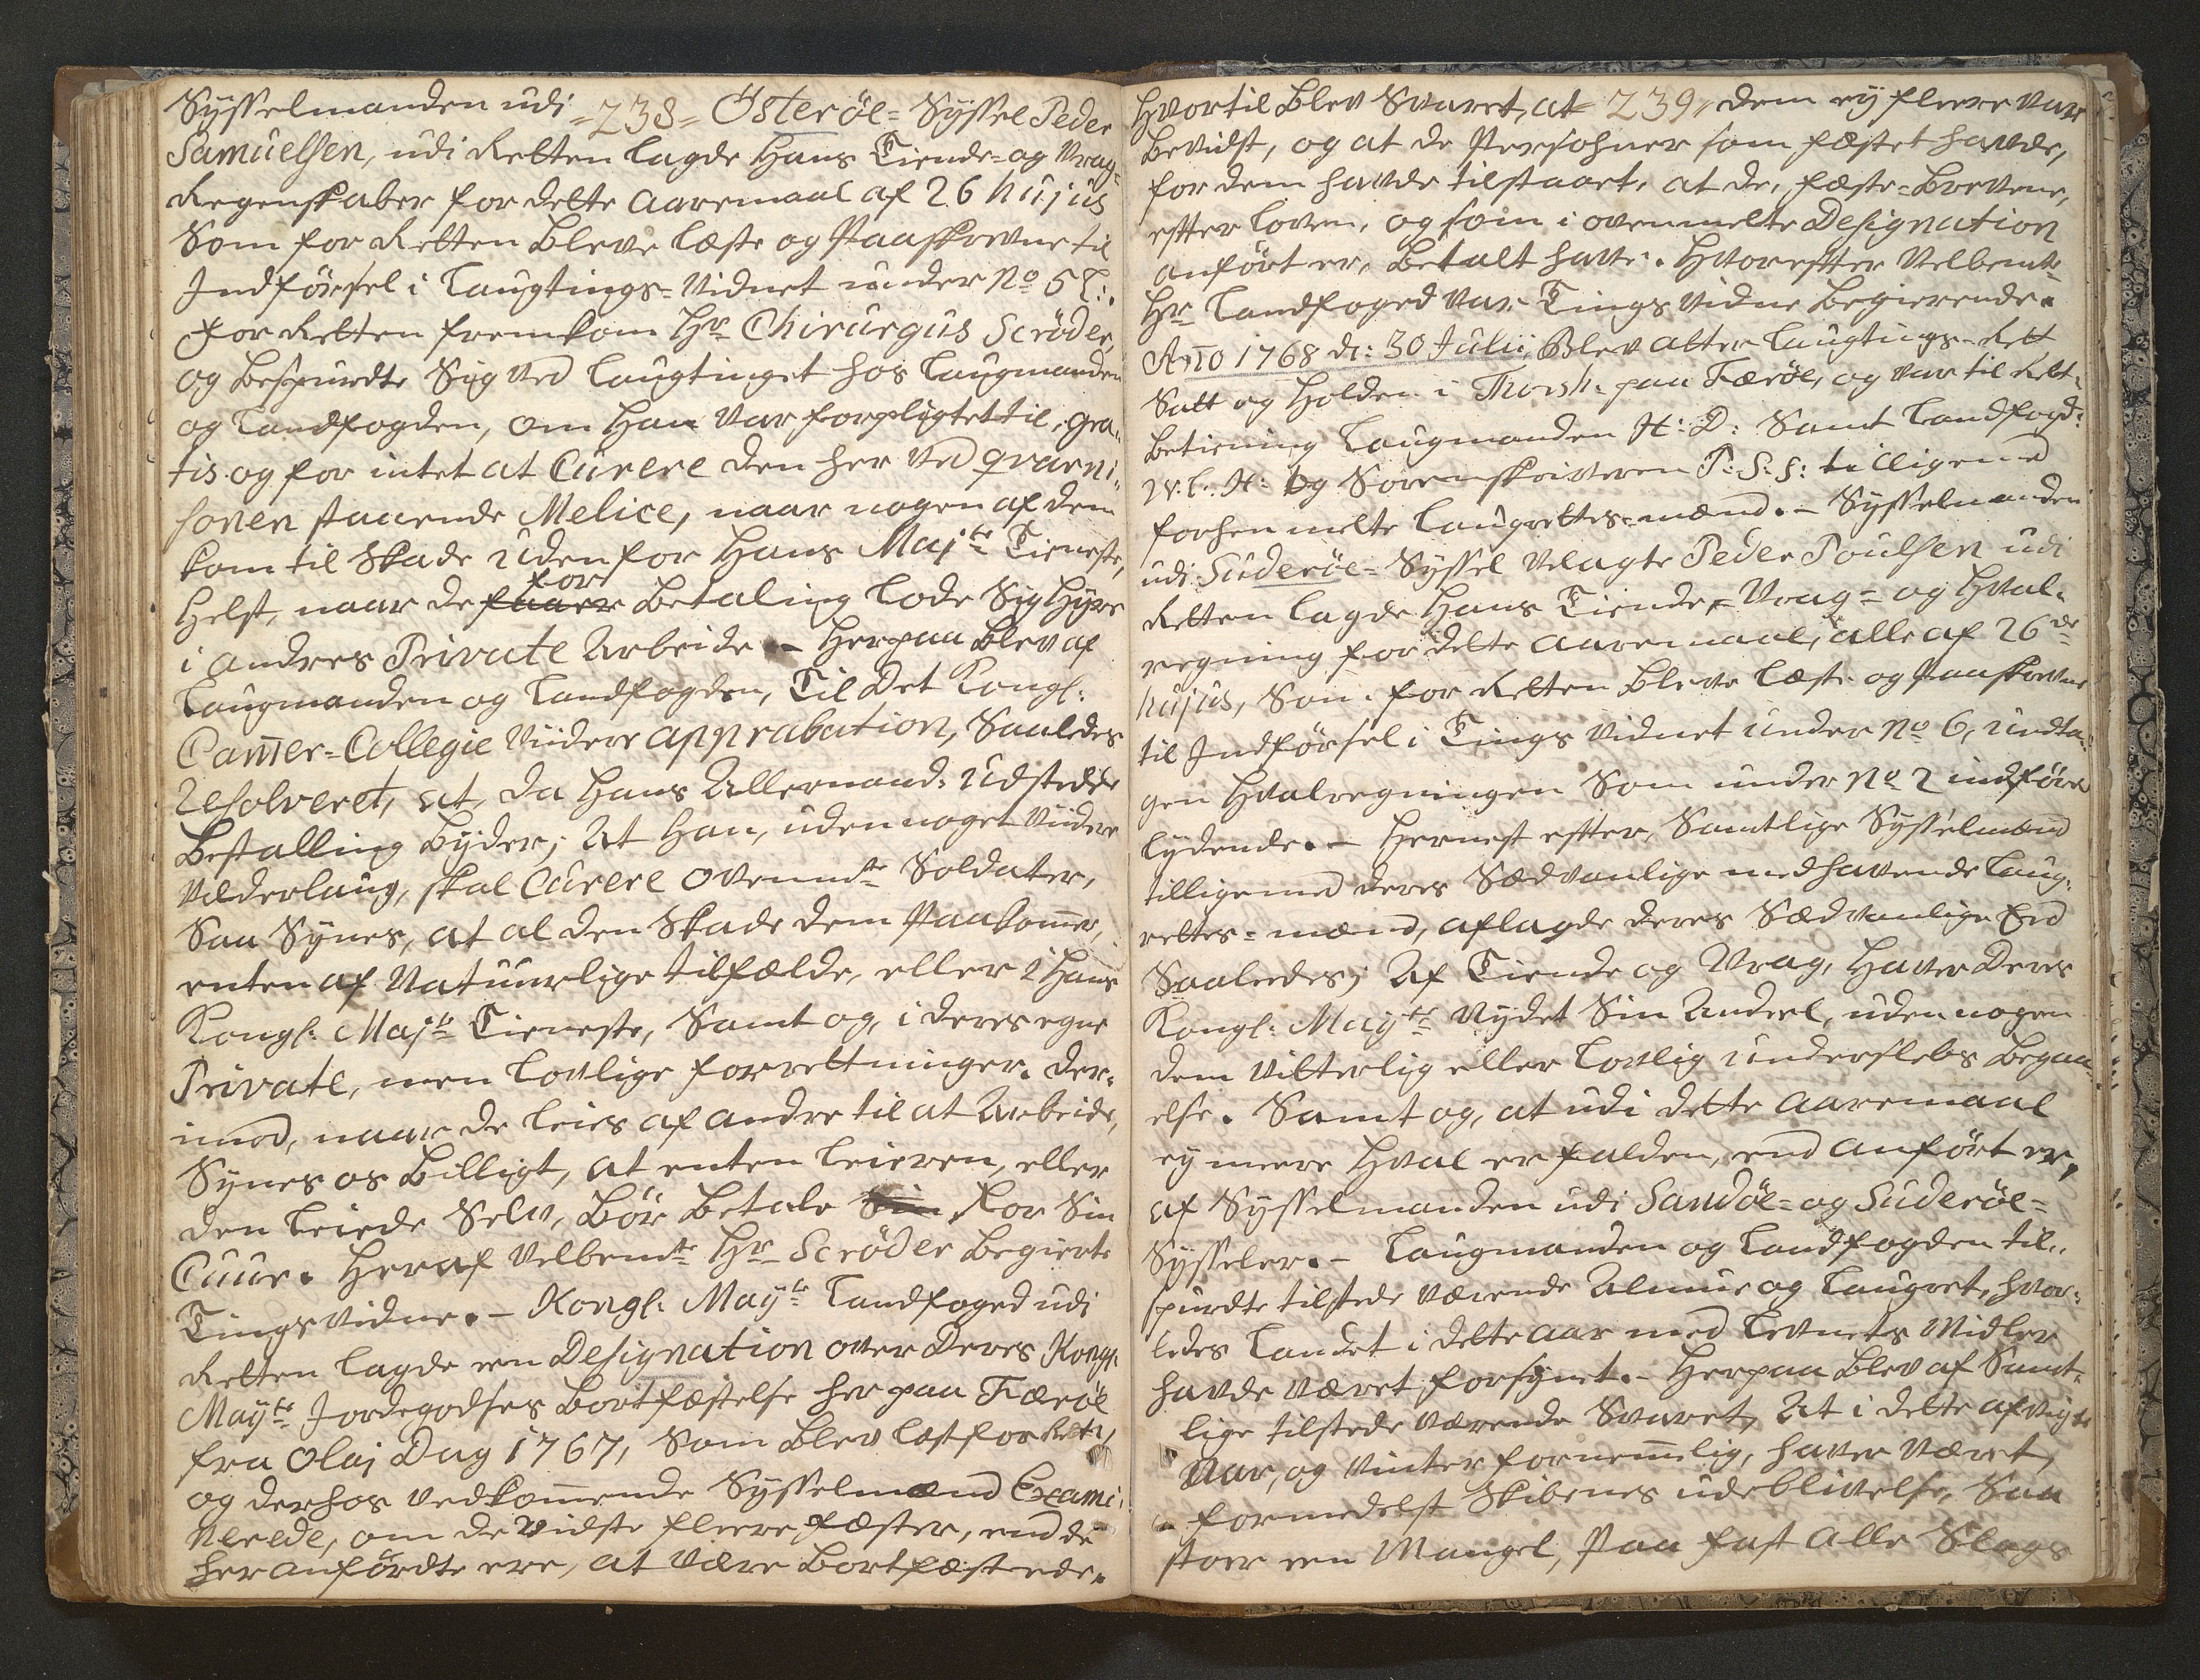 Sysselmanden udi =238= Österöe= Syssel Peder
Samuelsen, udi Retten lagde Hans Tiende= og Vrag=
Regenskaber for dette Aaremaal af 26 hujus
Som for Retten Bleve læste og Paaskrevne til
Indförsel i Laugtings= Vidnet under No 5
For Retten fremkom Hr Chirurgus Scröder,
og Bespurdte Sig ved Laugtinget hos Laugmanden
og Landfogden, om Han var forpligtet til, gra„
tis og for intet at Curere den her ved qvarni„
sonen staaende Melice, naar nogen af dem
kom til Skade uden for Hans Majts Tieneste,
Helst, naar de for Betaling lode Sig Hyre
i andres Private Arbeide .– Herpaa Blev af
Laugmanden og Landfogden, Til Det Kongl:
Cammer=Collegie Viidere apprabation, Saaledes
Resolveret, at, da Hans Allernaad: Udstedde
Bestalling Byder; At Han, uden noget Viidere
Vederlaug, skal Curere ovennte Soldater,
Saa Synes, at al den Skade dem Paakommer,
enten af Natuurlige tilfælde, eller i Hans
Kongl: Majts Tieneste, Samt og, i deres egne
Private, men lovlige forrettninger. Der=
imod, naar de leies af andre til at Arbeide,
Synes os Billigt, at enten leieren, eller
den leiede Selv, Bör Betale Sin For Sin
Cuur. Heraf Velbemte Hr Scröder Begierte
Tings vidne. – Kongl: Mayts Landfoged udi
Retten lagde een Designation over Deres Kongl:
Mayts Jordegodses Bortfæstelse her paa Færöe
fra Olaj Dag 1767, Som Blev læst for Rett:
og derhos vedkommende Sysselmænd Exami„
nerede, om de vidste fleere fæster, end de
her anfördte ere, at være Bortfæstede.
Hvortil Blev Svaret, at =239= dem ey fleere vare
Bevidst, og at de Persohner som fæstet havde,
for dem havde tilstaaet, at de, fæste=Brevene,
efter loven, og som i ovenmelte Designation
anfört er, Betalt have. Hvorefter Velbemte
Hr Landfoged var Tings vidne Begierende.
Anno 1768 d: 30 Julii, Blev atter Laugtings=Rett
Satt og Holden i Thorsh: paa Færöe, og var til Rett=
Betiening Laugmanden H: D: Samt Landfogd:
W. L. H: og Sorenskriveren P: S: S: tilligemed
forhen melte Laugrettes=mænd. – Sysselmanden
udi Suderöe= Syssel Velagte Peder Poulsen udi
Retten lagde Hans Tiende=, Vrag= og Hval=
regning for dette Aaremaal, alle af 26de
hujus, Som for Retten Bleve læste og Paaskrevne
til Indförsel i Tings Vidnet under No 6, undta„
gen Hvalregningen Som under No 2 indföres
lydende. – Hernest efter, Samtlige Sysselmænd
tilligemed deres Sædvanlige medhavende Laug=
rettes= mænd, aflagde deres Sædvanlige Eed
Saaledes; Af Tiende og Vrag, Haver Deres
Kongl: Mayts Nydet Sin Andeel, uden nogen
dem Vitterlig eller lovlig underslebs Begaa„
else. Samt og, at udi dette Aaremaal
ey meere Hval er falden, end anfört er,
af Sysselmanden udi Sandöe= og Suderöe=
Sysseler. – Laugmanden og Landfogden til„
spurdte tilstede værende Almue og Laugret, hvor=
ledes Landet i dette Aar med Levnets Midler
havde været forsynet. – Herpaa Blev af Samt=
lige tilstede værende Svaret, At i dette afvigte
Aar, og Vinter fornemmlig, haver været,
formedelst Skibenes udeblivelse, Saa
stoer een Mangel, Paa fast alle Slags